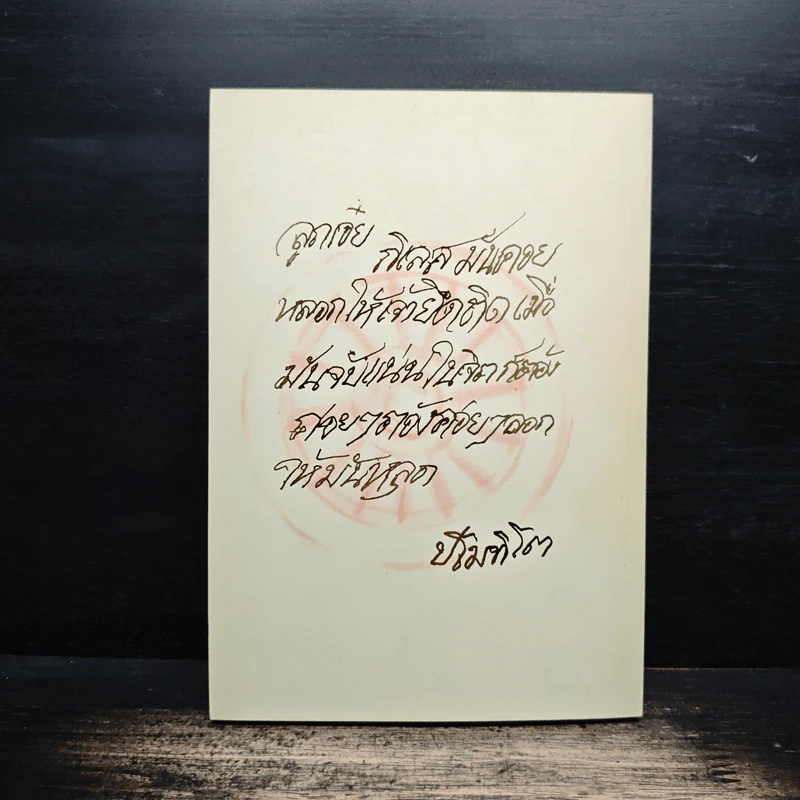 ลูกเอ๋ย กิเลส มันคอย
หลอกให้เจ้ายึดติด เมื่อ
มันจับแน่นในจิต ก็ต้อง
ค่อยๆ ค่อยๆลอก
ให้มันหลุด